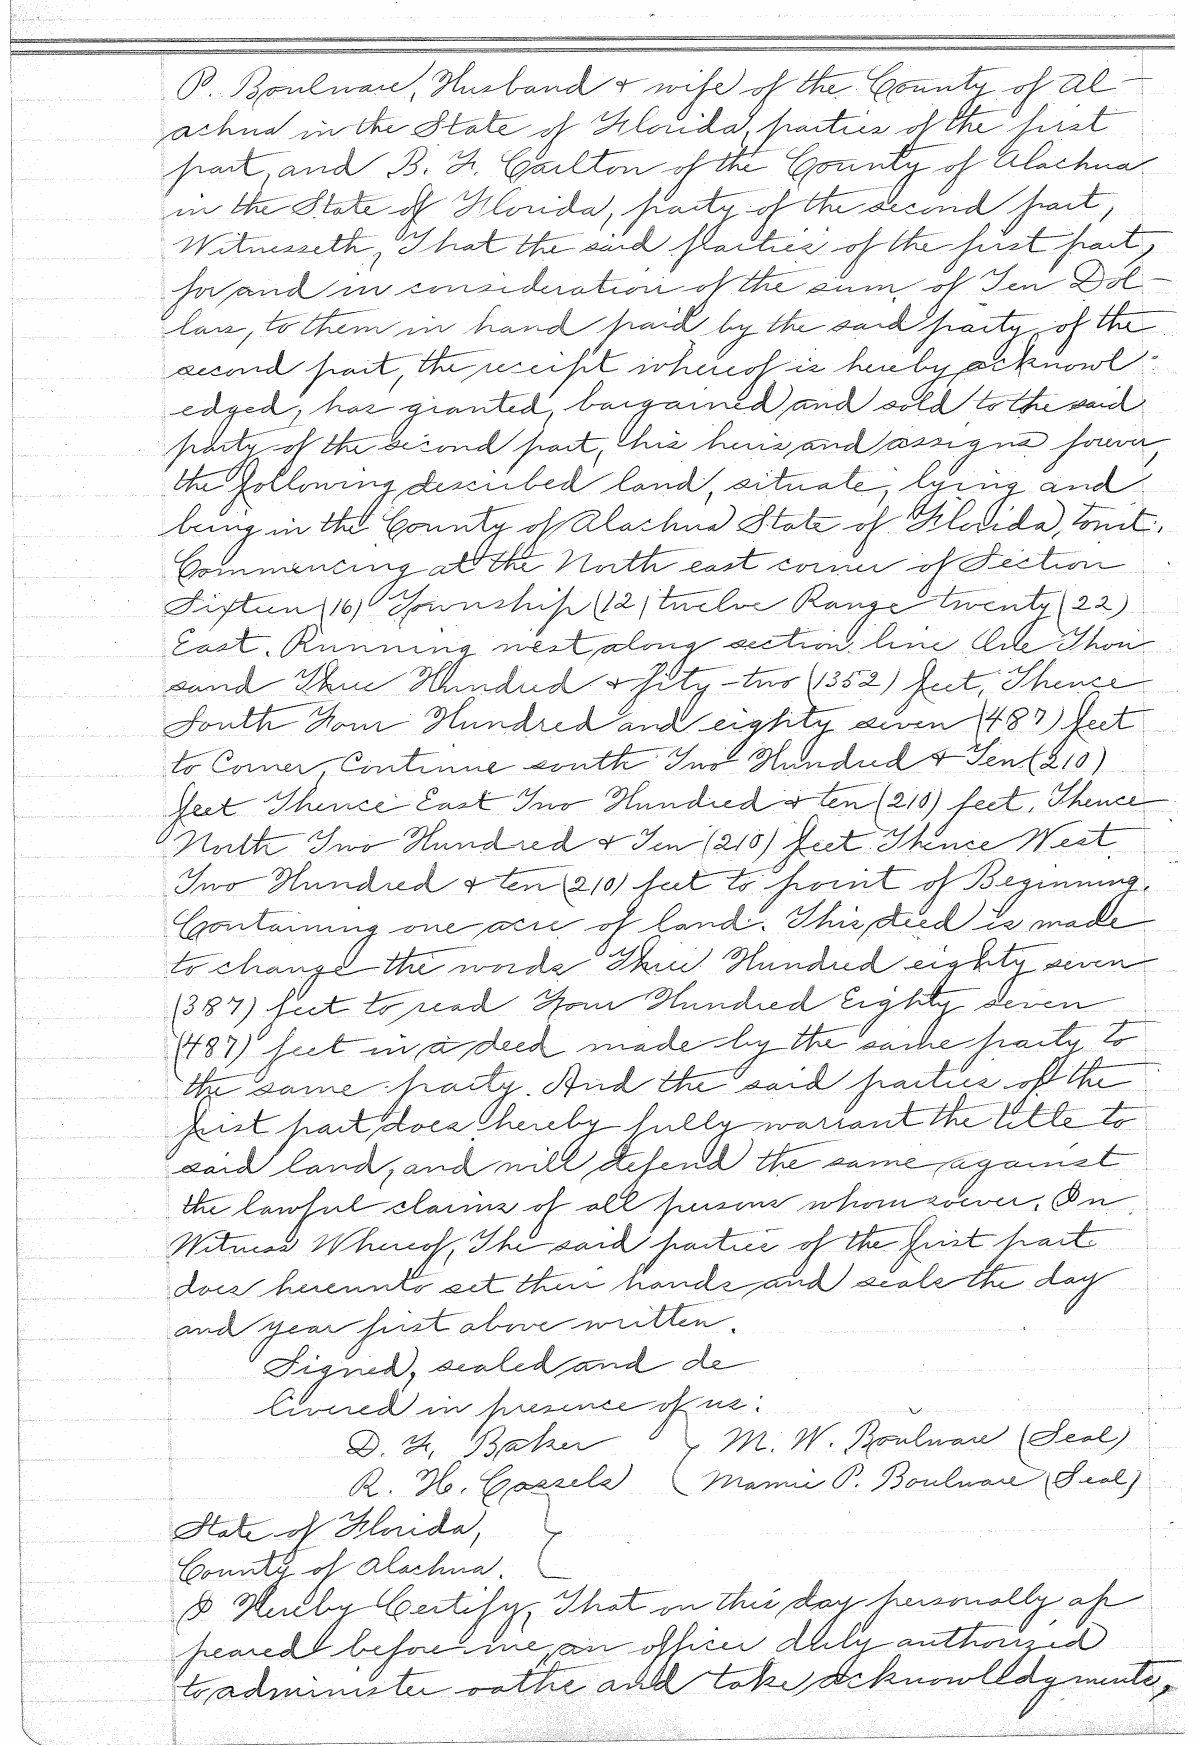 P. Boulware, Husband & wife of the County of Al-
achua in the State of Florida, parties of the first
part, and B. F. Carlton of the County of Alachua
in the State of Florida, party of the second part,
Witnesseth, That the said parties of the first part,
for and in consideration of the sum of Ten Dol-
lars, to them in hand paid by the said party of the
second part, the receipt whereof is hereby acknowl-
edged, has granted, bargained and sold to the said
party of the second part, his heirs and assigns forever,
the following described land, situate, lying and
being in the County of Alachua State of Florida, towit:
Commencing at the North east corner of Section
Sixteen (16) Township (12) twelve Range twenty (22)
East. Running west along section line One Thou
sand Three Hundred & fity-two (1352) feet, Thence
South Four Hundred and eighty seven (487) feet
to Corner, Continue south Two Hundred & Ten (210)
feet Thence East Two Hundred & ten (210) feet, Thence
North Two Hundred & Ten (210) feet Thence West
Two Hundred & ten (210) feet to point of Beginning.
Containing one acre of land. This deed is made
to change the words Three Hundred eighty seven
(387) feet to read Four Hundred Eighty seven
(487) feet in a deed made by the same party to
the same party. And the said parties of the
first part does hereby fully warrant the title to
said land, and will defend the same against
the lawful claims of all persons whomsoever. In
Witness Whereof, The said parties of the first part
does hereunto set their hands and seals the day
and year first above written.
Signed, sealed and de
livered in presence of us:
D. F. Baker } M. W. Boulware (Seal)
R. H. Cassels Mamie P. Boulware (Seal)
State of Florida, }
County of Alachua.
I Hereby Certify, That on this day personally ap
peared before me, an officer duly authorized
to administer oaths and take acknowlledgments,